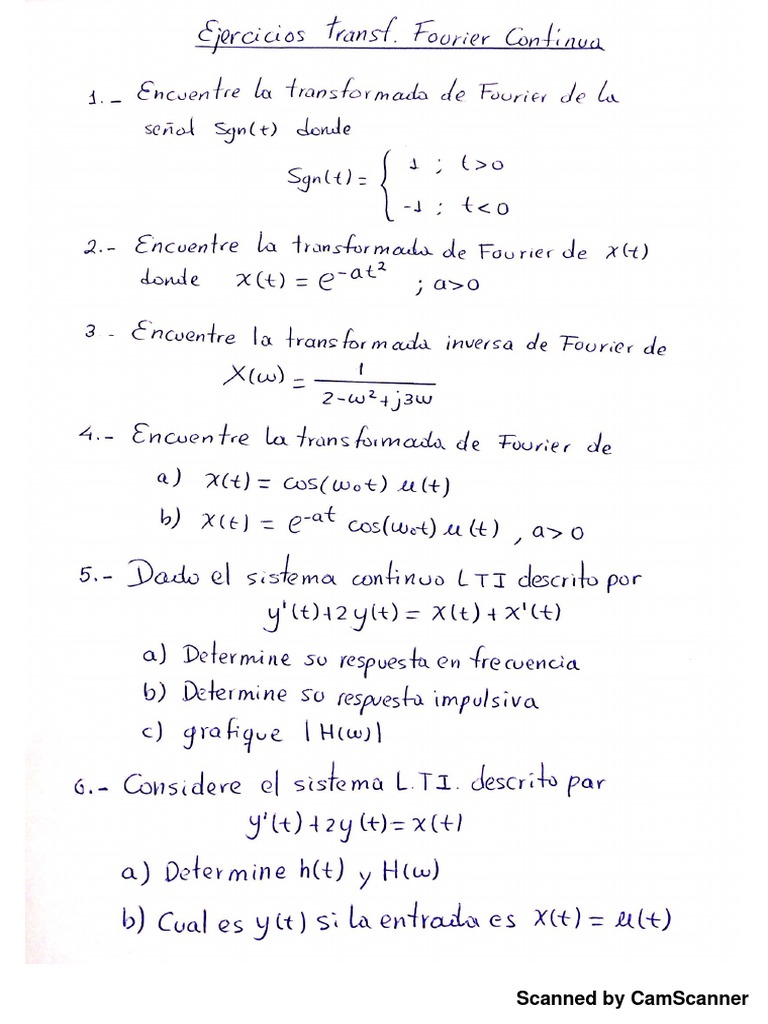 Ejercicios Transf. Fourier Continua
1.- Encuentre la transformada de Fourier de la
señal Sgn(t) donde
Sgn(t) = { 1 ; t>0
-1 ; t<0
2.- Encuentre la transformada de Fourier de x(t)
donde x(t) = e^{-at^2} ; a>0
3- Encuentre la transformada inversa de Fourier de
X(ω) = 1 / (2-ω²+j3ω)
4.- Encuentre la transformada de Fourier de
a) x(t) = cos(ω₀t) u(t)
b) x(t) = e^{-at} cos(ω₀t) u(t) , a>0
5.- Dado el sistema continuo LTI descrito por
y'(t)+2y(t) = x(t) + x'(t)
a) Determine su respuesta en frecuencia
b) Determine su respuesta impulsiva
c) grafique |H(ω)|
6.- Considere el sistema L.T.I. descrito por
y'(t)+2y(t) = x(t)
a) Determine h(t) y H(ω)
b) Cual es y(t) si la entrada es x(t) = u(t)
Scanned by CamScanner